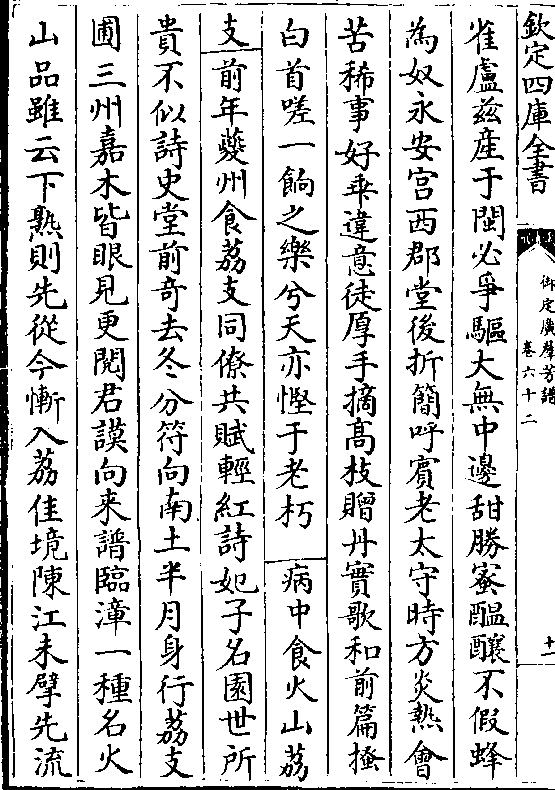 欽定四庫全書
御定廣羣芳譜
卷六十二
十一
雀盧兹産于閩必爭驅大無中邊甜勝蜜醖釀不假蜂
為奴永安宫西郡堂後折簡呼賓老太守時方炎熱會
苦稀事好乘違意徒厚手摘髙枝贈丹實歌和前篇掻
白首嗟一餉之樂兮天亦慳于老朽 病中食火山荔
支 前年夔州食荔支同僚共賦輕紅詩妃子名園世所
貴不似詩史堂前奇去冬分符向南土半月身行荔支
圃三州嘉木皆眼見更閱君謨向来譜臨漳一種名火
山品雖云下熟則先從今慚入荔佳境陳江未擘先流